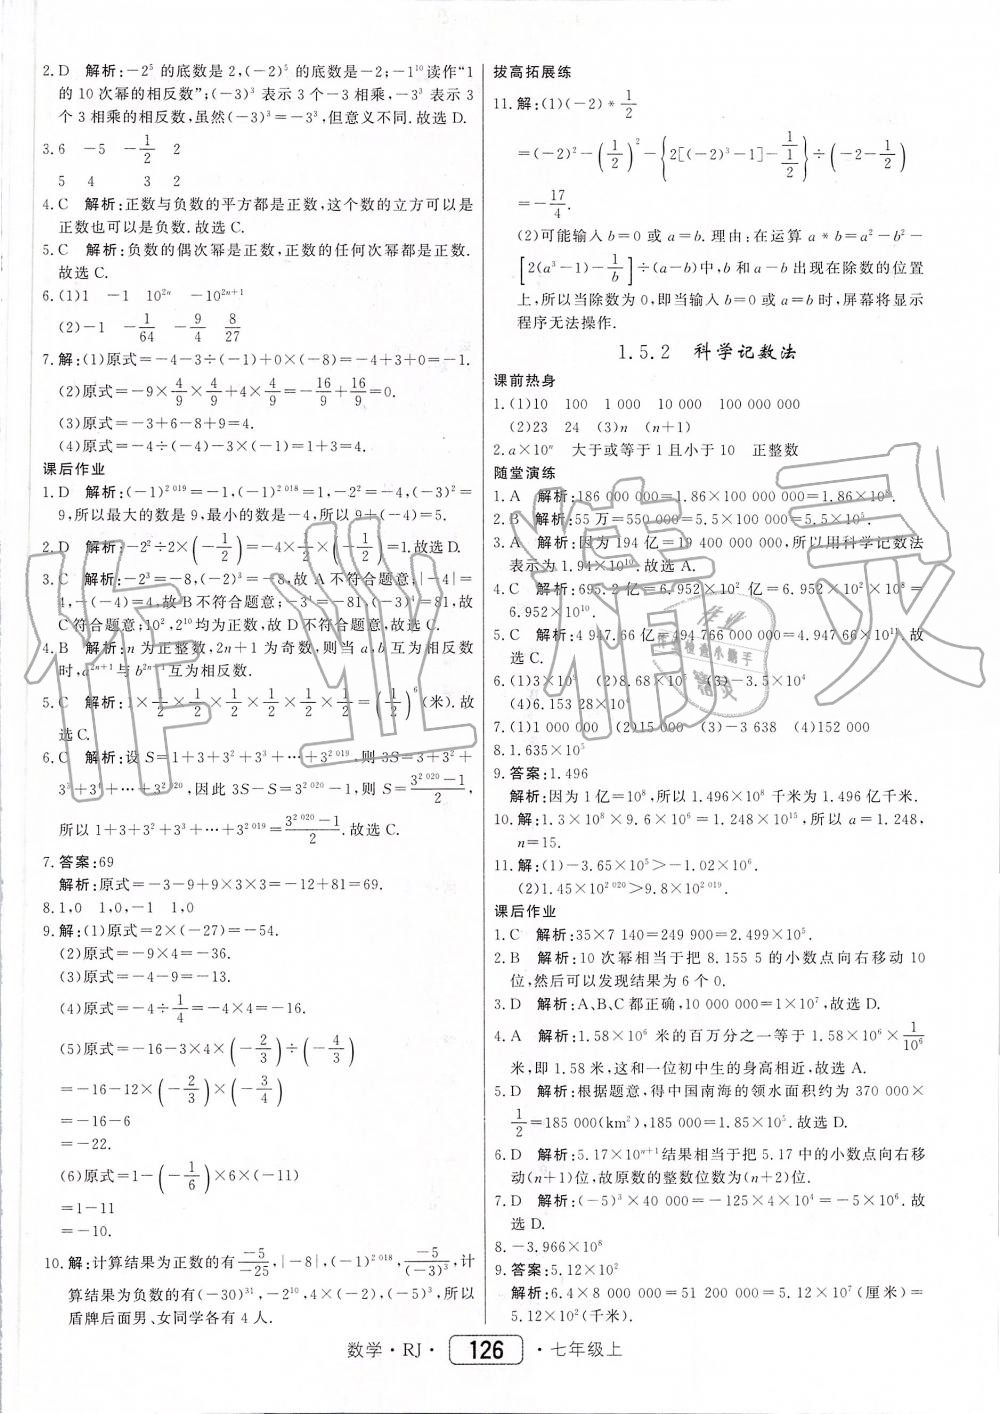 2.D 解析:−2⁵ 的底数是 2,(−2)⁵ 的底数是−2;−1¹⁰读作“1
的 10 次幂的相反数”;(−3)³ 表示 3 个−3 相乘,−3³ 表示 3
个 3 相乘的相反数,虽然(−3)³=−3³,但意义不同.故选 D.
3.6 −5 −1/2 2
5 4 3 2
4.C 解析:正数与负数的平方都是正数,这个数的立方可以是
正数也可以是负数.故选 C.
5.C 解析:负数的偶次幂是正数,正数的任何次幂都是正数.
故选 C.
6.(1)1 −1 10²ⁿ −10²ⁿ⁺¹
(2)−1 −1/64 −9/4 8/27
7.解:(1)原式=−4−3÷(−1)+0×(−8)=−4+3+0=−1.
(2)原式=−9×4/9×4/9+4×4/9=−16/9+16/9=0.
(3)原式=−3+6−8+9=4.
(4)原式=−4÷(−4)−3×(−1)=1+3=4.
课后作业
1.D 解析:(−1)²⁰¹⁹=−1,(−1)²⁰¹⁸=1,−2²=−4,(−3)²=
9,所以最大的数是 9,最小的数是−4,所以 9+(−4)=5.
2.D 解析:−2²÷2×(−1/2)=−4×1/2×(−1/2)=1.故选 D.
3.C 解析:−2³=−8,(−2)³=−8,故 A 不符合题意;|−4|=
4,−(−4)=4,故 B 不符合题意;−3⁴=−81,(−3)⁴=81,故
C 符合题意;10²,2¹⁰均为正数,故 D 不符合题意.故选 C.
4.B 解析:n 为正整数,2n+1 为奇数,则当 a,b 互为相反数
时,a²ⁿ⁺¹与 b²ⁿ⁺¹互为相反数.
5.C 解析:1×1/2×1/2×1/2×1/2×1/2×1/2=(1/2)⁶(米).故
选 C.
6.C 解析:设 S=1+3+3²+3³+…+3²⁰¹⁹,则 3S=3+3²+
3³+3⁴+…+3²⁰²⁰,因此 3S−S=3²⁰²⁰−1,则 S=(3²⁰²⁰−1)/2,
所以 1+3+3²+3³+…+3²⁰¹⁹=(3²⁰²⁰−1)/2.故选 C.
7.答案:69
解析:原式=−3−9+9×3×3=−12+81=69.
8.1,0 1,0,−1 1,0
9.解:(1)原式=2×(−27)=−54.
(2)原式=−9×4=−36.
(3)原式=−4−9=−13.
(4)原式=−4÷1/4=−4×4=−16.
(5)原式=−16−3×4×(−2/3)÷(−4/3)
=−16−12×(−2/3)×(−3/4)
=−16−6
=−22.
(6)原式=1−(−1/6)×6×(−11)
=1−11
=−10.
10.解:计算结果为正数的有 −5/−25,|−8|,(−1)²⁰¹⁸,−5/(−3)³,计
算结果为负数的有(−30)³¹,−2¹⁰,4×(−2),(−5)³,所以
盾牌后面男、女同学各有 4 人.
拔高拓展练
11.解:(1)(−2)*1/2
=(−2)²−(1/2)²−{2[(−2)³−1]−1/(1/2)}÷(−2−1/2)
=−17/4.
(2)可能输入 b=0 或 a=b.理由:在运算 a*b=a²−b²−
[2(a³−1)−1/b]÷(a−b)中,b 和 a−b 出现在除数的位置
上,所以当除数为 0,即当输入 b=0 或 a=b 时,屏幕将显示
程序无法操作.
1.5.2 科学记数法
课前热身
1.(1)10 100 1 000 10 000 100 000 000
(2)23 24 (3)n (n+1)
2.a×10ⁿ 大于或等于 1 且小于 10 正整数
随堂演练
1.A 解析:186 000 000=1.86×100 000 000=1.86×10⁸.
2.B 解析:55 万=550 000=5.5×100 000=5.5×10⁵.
3.A 解析:因为 194 亿=19 400 000 000,所以用科学记数法
表示为 1.94×10¹⁰.故选 A.
4.C 解析:695.2 亿=6.952×10² 亿=6.952×10²×10⁸=
6.952×10¹⁰.
5.C 解析:4 947.66 亿=494 766 000 000=4.947 66×10¹¹.故
选 C.
6.(1)3×10⁸ (2)8.68×10⁵ (3)−3.5×10⁴
(4)6.153 28×10⁵
7.(1)1 000 000 (2)15 000 (3)−3 638 (4)152 000
8.1.635×10⁵
9.答案:1.496
解析:因为 1 亿=10⁸,所以 1.496×10⁸ 千米为 1.496 亿千米.
10.解:1.3×10⁸×9.6×10⁶=1.248×10¹⁵,所以 a=1.248,
n=15.
11.解:(1)−3.65×10⁵>−1.02×10⁶.
(2)1.45×10²⁰²⁰>9.8×10²⁰¹⁹.
课后作业
1.C 解析:35×7 140=249 900=2.499×10⁵.
2.B 解析:10 次幂相当于把 8.155 5 的小数点向右移动 10
位,然后可以发现结果为 6 个 0.
3.D 解析:A、B、C 都正确,10 000 000=1×10⁷,故选 D.
4.A 解析:1.58×10⁶ 米的百万分之一等于 1.58×10⁶×1/10⁶
米,即 1.58 米,这和一位初中生的身高相近,故选 A.
5.D 解析:根据题意,得中国南海的领水面积约为 370 000×
1/2=185 000(km²),185 000=1.85×10⁵.故选 D.
6.D 解析:5.17×10ⁿ⁺¹结果相当于把 5.17 中的小数点向右移
动(n+1)位,故原数的整数位数为(n+2)位.
7.D 解析:(−5)³×40 000=−125×4×10⁴=−5×10⁶.故
选 D.
8.−3.966×10⁸
9.答案:5.12×10²
解析:6.4×8 000 000=51 200 000=5.12×10⁷(厘米)=
5.12×10²(千米).
数学·RJ· 126 ·七年级上
作业精灵